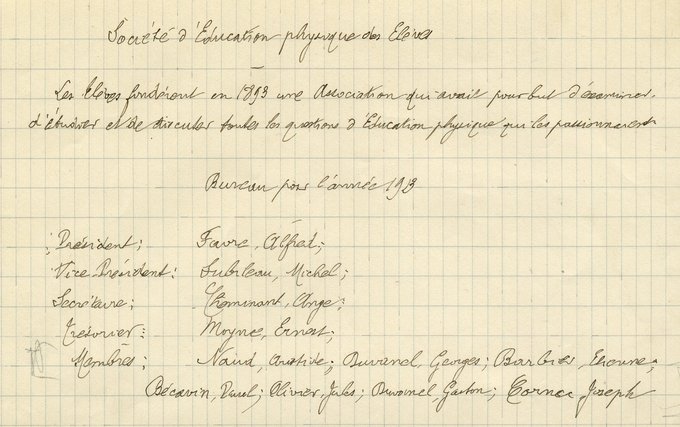 Société d'Éducation physique des Élèves
Les Élèves fondèrent en 1893 une Association qui avait pour but d'examiner,
d'étudier et de discuter toutes les questions d'Éducation physique qui les passionnaient
Bureau pour l'année 1913
Président; Favre, Alfred;
Vice Président: Lubileau, Michel;
Secrétaire; Cheminant, Ange;
Trésorier: Moyne, Ernest;
Membres; Naud, Aristide; Duvanel, Georges; Barbier, Etienne;
Bécavin, Paul; Olivier, Jules; Duvanel Gaston; Cornec Joseph